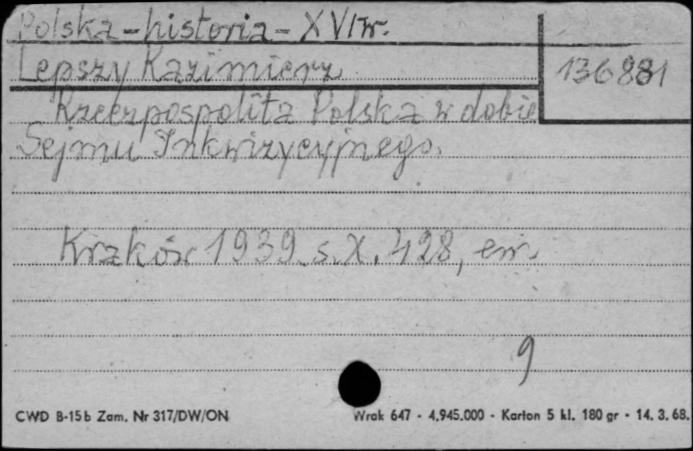 Polska - historia - XVI w.
Lepszy Kazimierz
136881
Rzeczpospolita Polska w dobie
Sejmu Inkwizycyjnego.
Kraków 1939. s. X. 428,
9
CWD B-15b Zam. Nr 317/DW/ON
Wrak 647 - 4.945.000 - Karton 5 kl. 180 gr - 14. 3. 68.